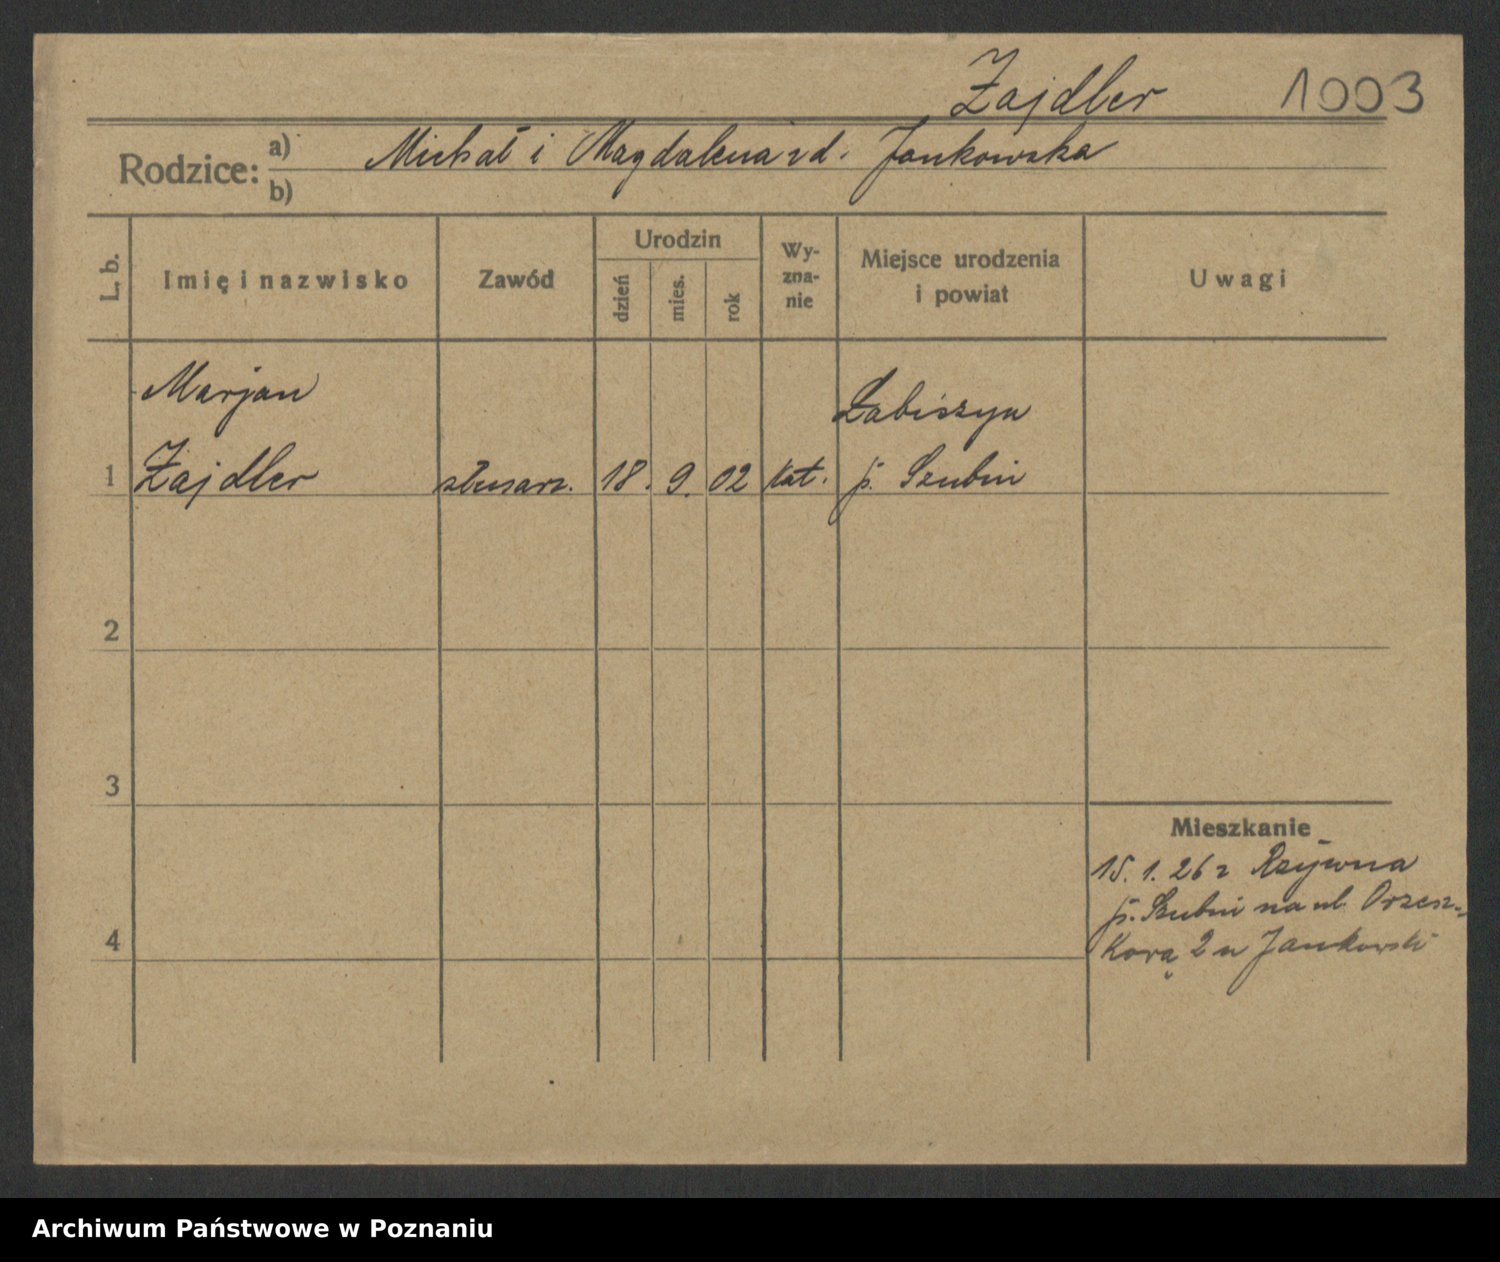 Zajdler 1003
Rodzice: a) Michał i Magdalena zd. Jankowska
b)
L. b. Imię i nazwisko Zawód Urodzin dzień mies. rok Wy-zna-nie Miejsce urodzenia i powiat Uwagi
Marjan Łabiszyn
1 Zajdler ślusarz. 18. 9. 02 kat. p. Szubin
2
3
Mieszkanie
15. 1. 26 z
p. Szubin na ul. Orzesz-
4 kową 2 u Jankowski
Archiwum Państwowe w Poznaniu